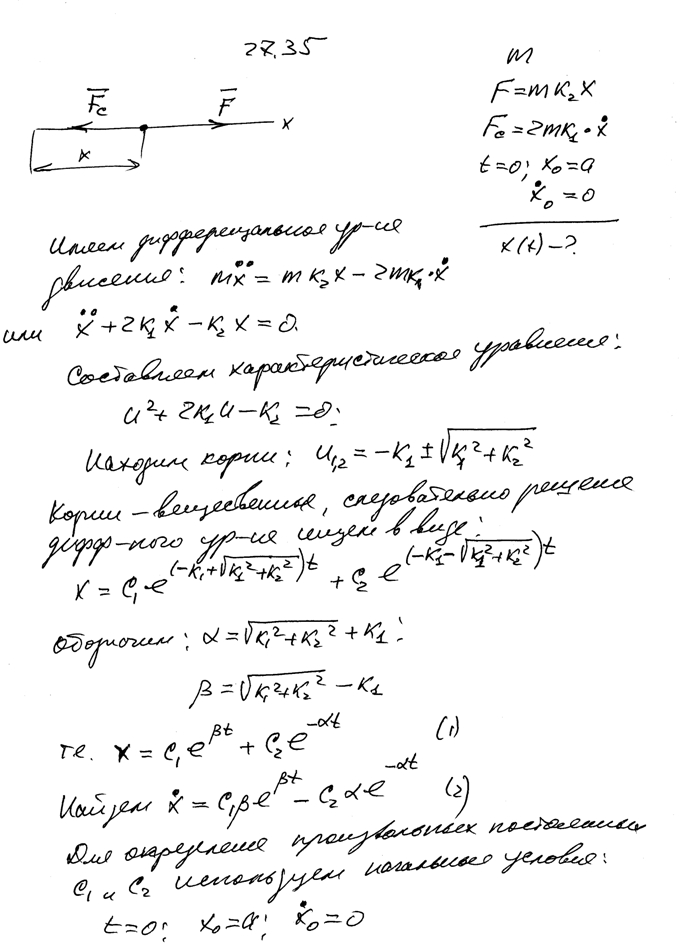 27.35
m
F = mk₂x
F̄c F̄
x
Fc = 2mk₁·ẋ
x
t=0; x₀=a
ẋ₀=0
x(t)-?
Имеем дифференциальное ур-ие
движения: mẍ = mk₂x - 2mk₁·ẋ
или ẍ + 2k₁ẋ - k₂x = 0.
Составляем характеристическое уравнение:
u² + 2k₁u - k₂ = 0;
Находим корни: u₁,₂ = -k₁ ± √(k₁² + k₂²)
Корни - вещественные, следовательно решение
дифф-ного ур-ия ищем в виде:
x = C₁e^(-k₁+√(k₁²+k₂²))t + C₂e^(-k₁-√(k₁²+k₂²))t
Обозначим: α = √(k₁²+k₂²) + k₁;
β = √(k₁²+k₂²) - k₁
т.е. x = C₁e^βt + C₂e^-αt (1)
Найдем ẋ = C₁βe^βt - C₂αe^-αt (2)
Для определения произвольных постоянных
C₁ и C₂ используем начальные условия:
t=0; x₀=a; ẋ₀=0